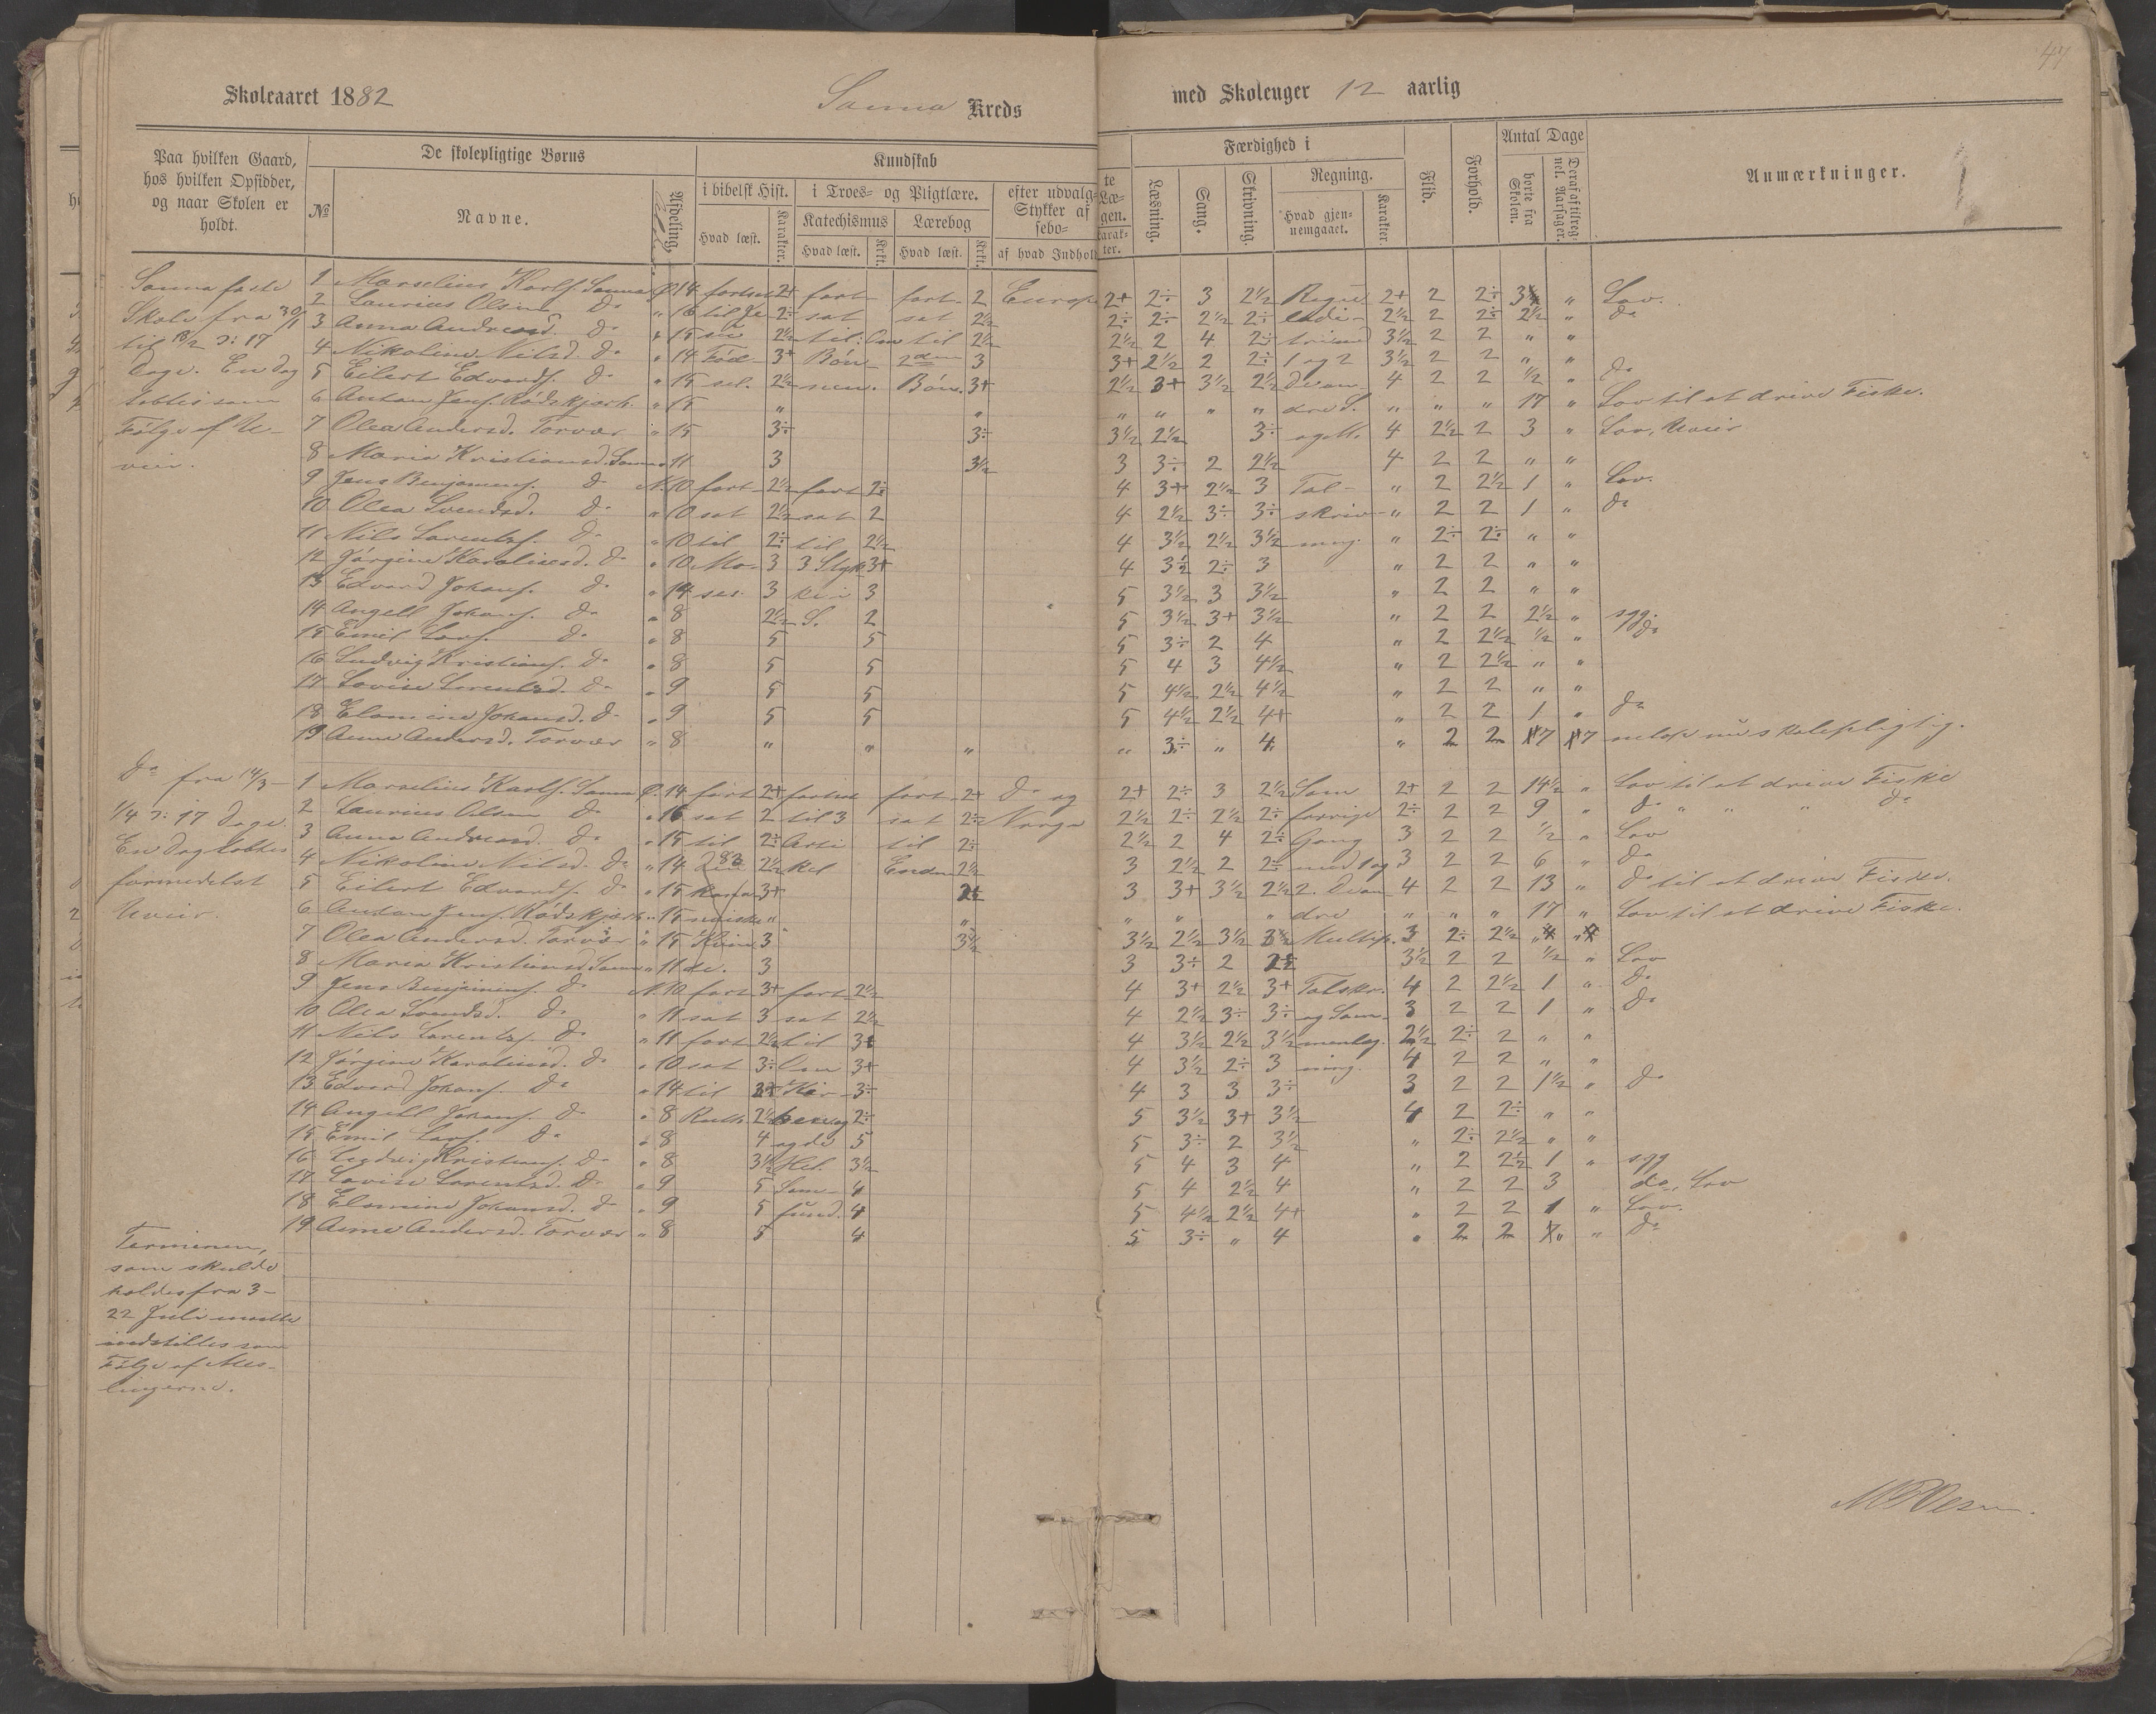 47
Skoleaaret 1882 Sanna Kreds med Skoleuger 12 aarlig
Paa hvilken Gaard, hos hvilken Opsidder, og naar Skolen er holdt.
De skolepligtige Børns
№ Navne.
Afdeling.
Kundskab
i bibelsk Hist.
Hvad læst. Karakter.
i Troes- og Pligtlære.
Katechismus Lærebog
Hvad læst. Krkt. Hvad læst. Krkt.
efter udvalg- Stykker af sebo- af hvad Indhold
te Læ- gen. Karak- ter.
Færdighed i
Læsning. Sang. Skrivning.
Regning.
Hvad gjen- nemgaaet. Karakter.
Flid. Forhold.
Antal Dage
borte fra Skolen. Deraf aftilreg- nel. Aarsager.
Anmærkninger.
Sanna faste
Skole fra 30/1
til 18/2 ɔ: 17
Dage. En Dag
tabtes som
Følge af U-
veir.
1 Marselius Karls. Sanna Ø. 14 fortsat 2+ fort- fort- 2 Europa 2+ 2÷ 3 2½ Regue 2+ 2 2÷ 3 " Lov.
2 Laurius Olsen do " 16 til Je- 2÷ sat sat 2½ 2÷ 2÷ 2½ 2÷ 2½ 2 2÷ 2½ " do
3 Anna Andreasd. do " 15 su 2½ til: Om til 2½ 2½ 2 4 2÷ 3½ 2 2 " "
4 Nikoline Nilsd. do " 14 Fød- 3+ Bøn- 2den 3 3+ 2½ 2 2÷ 1 og 2 3½ 2 2 " "
5 Eilert Edvards. do " 15 sel. 2½ nen. Bøn. 3+ 2½ 3+ 3½ 2½ Divan- 4 2 2 ½ " do
6 Antan Jens. Rødskjærh. " 15 " " " " " " dre S. " " " 17 " Lov til at drive Fiske.
7 Olea Andersd. Torvær " 15 3÷ 3÷ 3½ 2½ 3÷ og M. 4 2½ 2 3 " Lov, Uveir
8 Maria Kristiansd. Sanna " 11 3 3½ 3 3÷ 2 2½ 4 2 2 " "
9 Jens Benjamins. do N. 10 fort- 2½ fort 2÷ 4 3+ 2½ 3 Tal- " 2 2½ 1 " Lov.
10 Olea Svendsd. do " 10 sat 2½ sat 2 4 2½ 3÷ 3÷ skriv- " 2 2 1 " do
11 Nils Lorents. do " 10 til 2÷ til 2½ 4 3½ 2½ 3½ ning. " 2÷ 2÷ " "
12 Jørgine Karolinesd. do " 10 Mo- 3 3 Styk- 3+ 4 3½ 2÷ 3 " 2 2 " "
13 Edvard Johans. do " 14 ses. 3 ket 3 5 3½ 3 3½ " 2 2 " "
14 Angell Johans. do " 8 2½ S. 2 5 3½ 3+ 3½ " 2 2 2½ " syg.
15 Emil Lars. do " 8 5 5 5 3÷ 2 4 " 2 2½ ½ " do
16 Ludvig Kristians. do " 8 5 5 5 4 3 4½ " 2 2½ " "
17 Lovise Lorentsd. do " 9 5 5 5 4½ 2½ 4½ " 2 2 " "
18 Elamine Johansd. do " 9 5 5 5 4½ 2½ 4+ " 2 2 1 " do
19 Anne Andersd. Torvær " 8 " " " " 3÷ " 4 " 2 2 17 17 netop nu skolepligtig.
do fra 14/3-
1/4 ɔ: 17 Dage.
En Dag tabtes
formedelst
Uveir.
1 Marselius Karls. Sanna Ø. 14 fort 2+ fortsat fort- 2+ do og 2+ 2÷ 3 2½ Som 2+ 2 2 14½ " Lov til at drive Fiske
2 Laurius Olsen do " 16 sat 2 til 3 sat 2÷ Norge 2½ 2÷ 2½ 2÷ forrige 2÷ 2 2 9 " do " " " do
3 Anna Andreasd. do " 15 til 2÷ Arti til 2÷ 2½ 2 4 2÷ Gang 3 2 2 ½ " Lov
4 Nikoline Nilsd. do " 14 2½ kel Enden 2½ 3 2½ 2 2÷ med 1 og 3 2 2 6 " do
5 Eilert Edvards. do " 15 3+ 3 3+ 3½ 2½ 2. Divan 4 2 2 13 " do til at drive Fiske.
6 Antan Jens. Rødskjærh. " 15 " " " " " dre " " " 17 " Lov til at drive Fiske.
7 Olea Andersd. Torvær " 15 Kvin 3 3½ 3½ 2½ 3½ Multip. 3 2÷ 2½
8 Maria Kristiansd. Sanna " 11 de. 3 3 3÷ 2 3½ 2 2 ½ " Lov
9 Jens Benjamins. do N. 10 fort 3+ fort 2½ 4 3+ 2½ 3+ Talskr. 4 2 2½ 1 " do
10 Olea Svendsd. do " 11 sat 3 sat 2½ 4 2½ 3÷ 3÷ og Sam- 3 2 2 1 " do
11 Nils Lorents. do " 11 fort 2½ til 3+ 4 3½ 2½ 3½ menlæg- 2½ 2÷ 2 " "
12 Jørgine Karolinesd. do " 10 sat 3÷ Om 3+ 4 3½ 2÷ 3 ning. 4 2 2 " "
13 Edvard Johans. do " 14 til Kir- 3÷ 4 3 3 3÷ 3 2 2 1½ " do
14 Angell Johans. do " 8 Ruth. 2½ ken og 2÷ 5 3½ 3+ 3½ 4 2 2÷ " "
15 Emil Lars. do " 8 4 og de 5 5 3÷ 2 3½ " 2÷ 2½ " "
16 Ludvig Kristians. do " 8 3½ Hel. 3½ 5 4 3 4 " 2 2½ 1 " syg
17 Lovise Lorentsd. do " 9 5 Sam- 4 5 4 2½ 4 " 2 2 3 do, Lov
18 Elamine Johansd. do " 9 5 fund. 4 5 4½ 2½ 4+ " 2 2 1 " Lov.
19 Anne Andersd. Torvær " 8 5 4 5 3÷ " 4 " 2 2 " do
Terminen,
som skulde
holdes fra 3-
22 Juli maatte
indstilles som
Følge af Mes-
lingerne.